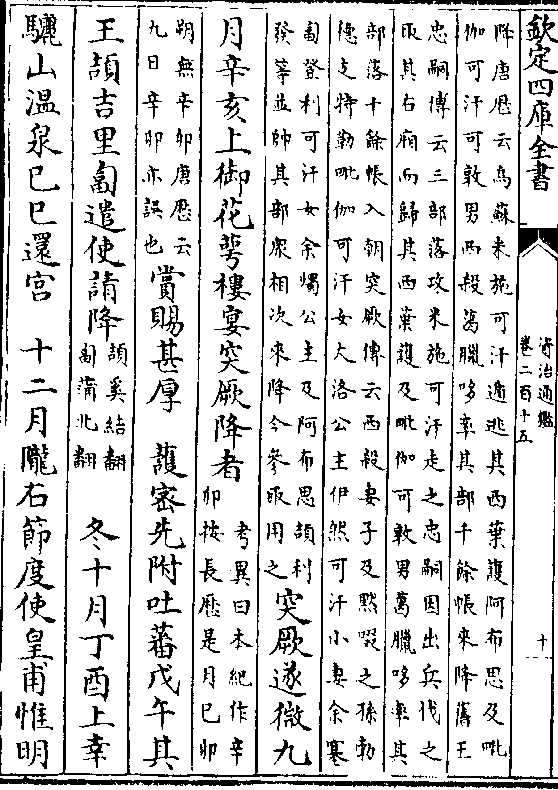 欽定四庫全書
資治通鑑
卷二百十五
十
降唐厯云烏蘇米施可汗遁逃其西葉護阿布思及毗
伽可汗可敦男西殺葛臘哆率其部千餘帳來降舊王
忠嗣傳云三部落攻米施可汗走之忠嗣因出兵伐之
取其右廂而歸其西葉護及毗伽可敦男葛臘哆率其
部落千餘帳入朝突厥傳云西殺妻子及黙啜之孫勃
德支特勒毗伽可汗女大洛公主伊然可汗小妻余塞
匐登利可汗女余燭公主及阿布思頡利
發等並帥其部衆相次來降今參取用之
突厥遂微九
月辛亥上御花萼樓宴突厥降者
考異曰本紀作辛
卯按長厯是月已卯
朔無辛卯唐厯云
九日辛卯亦誤也
賞賜甚厚　護密先附吐蕃戊午其
王頡吉里匐遣使請降
頡奚結翻
匐蒲北翻
冬十月丁酉上幸
驪山温泉已巳還宫　十二月隴右節度使皇甫惟明